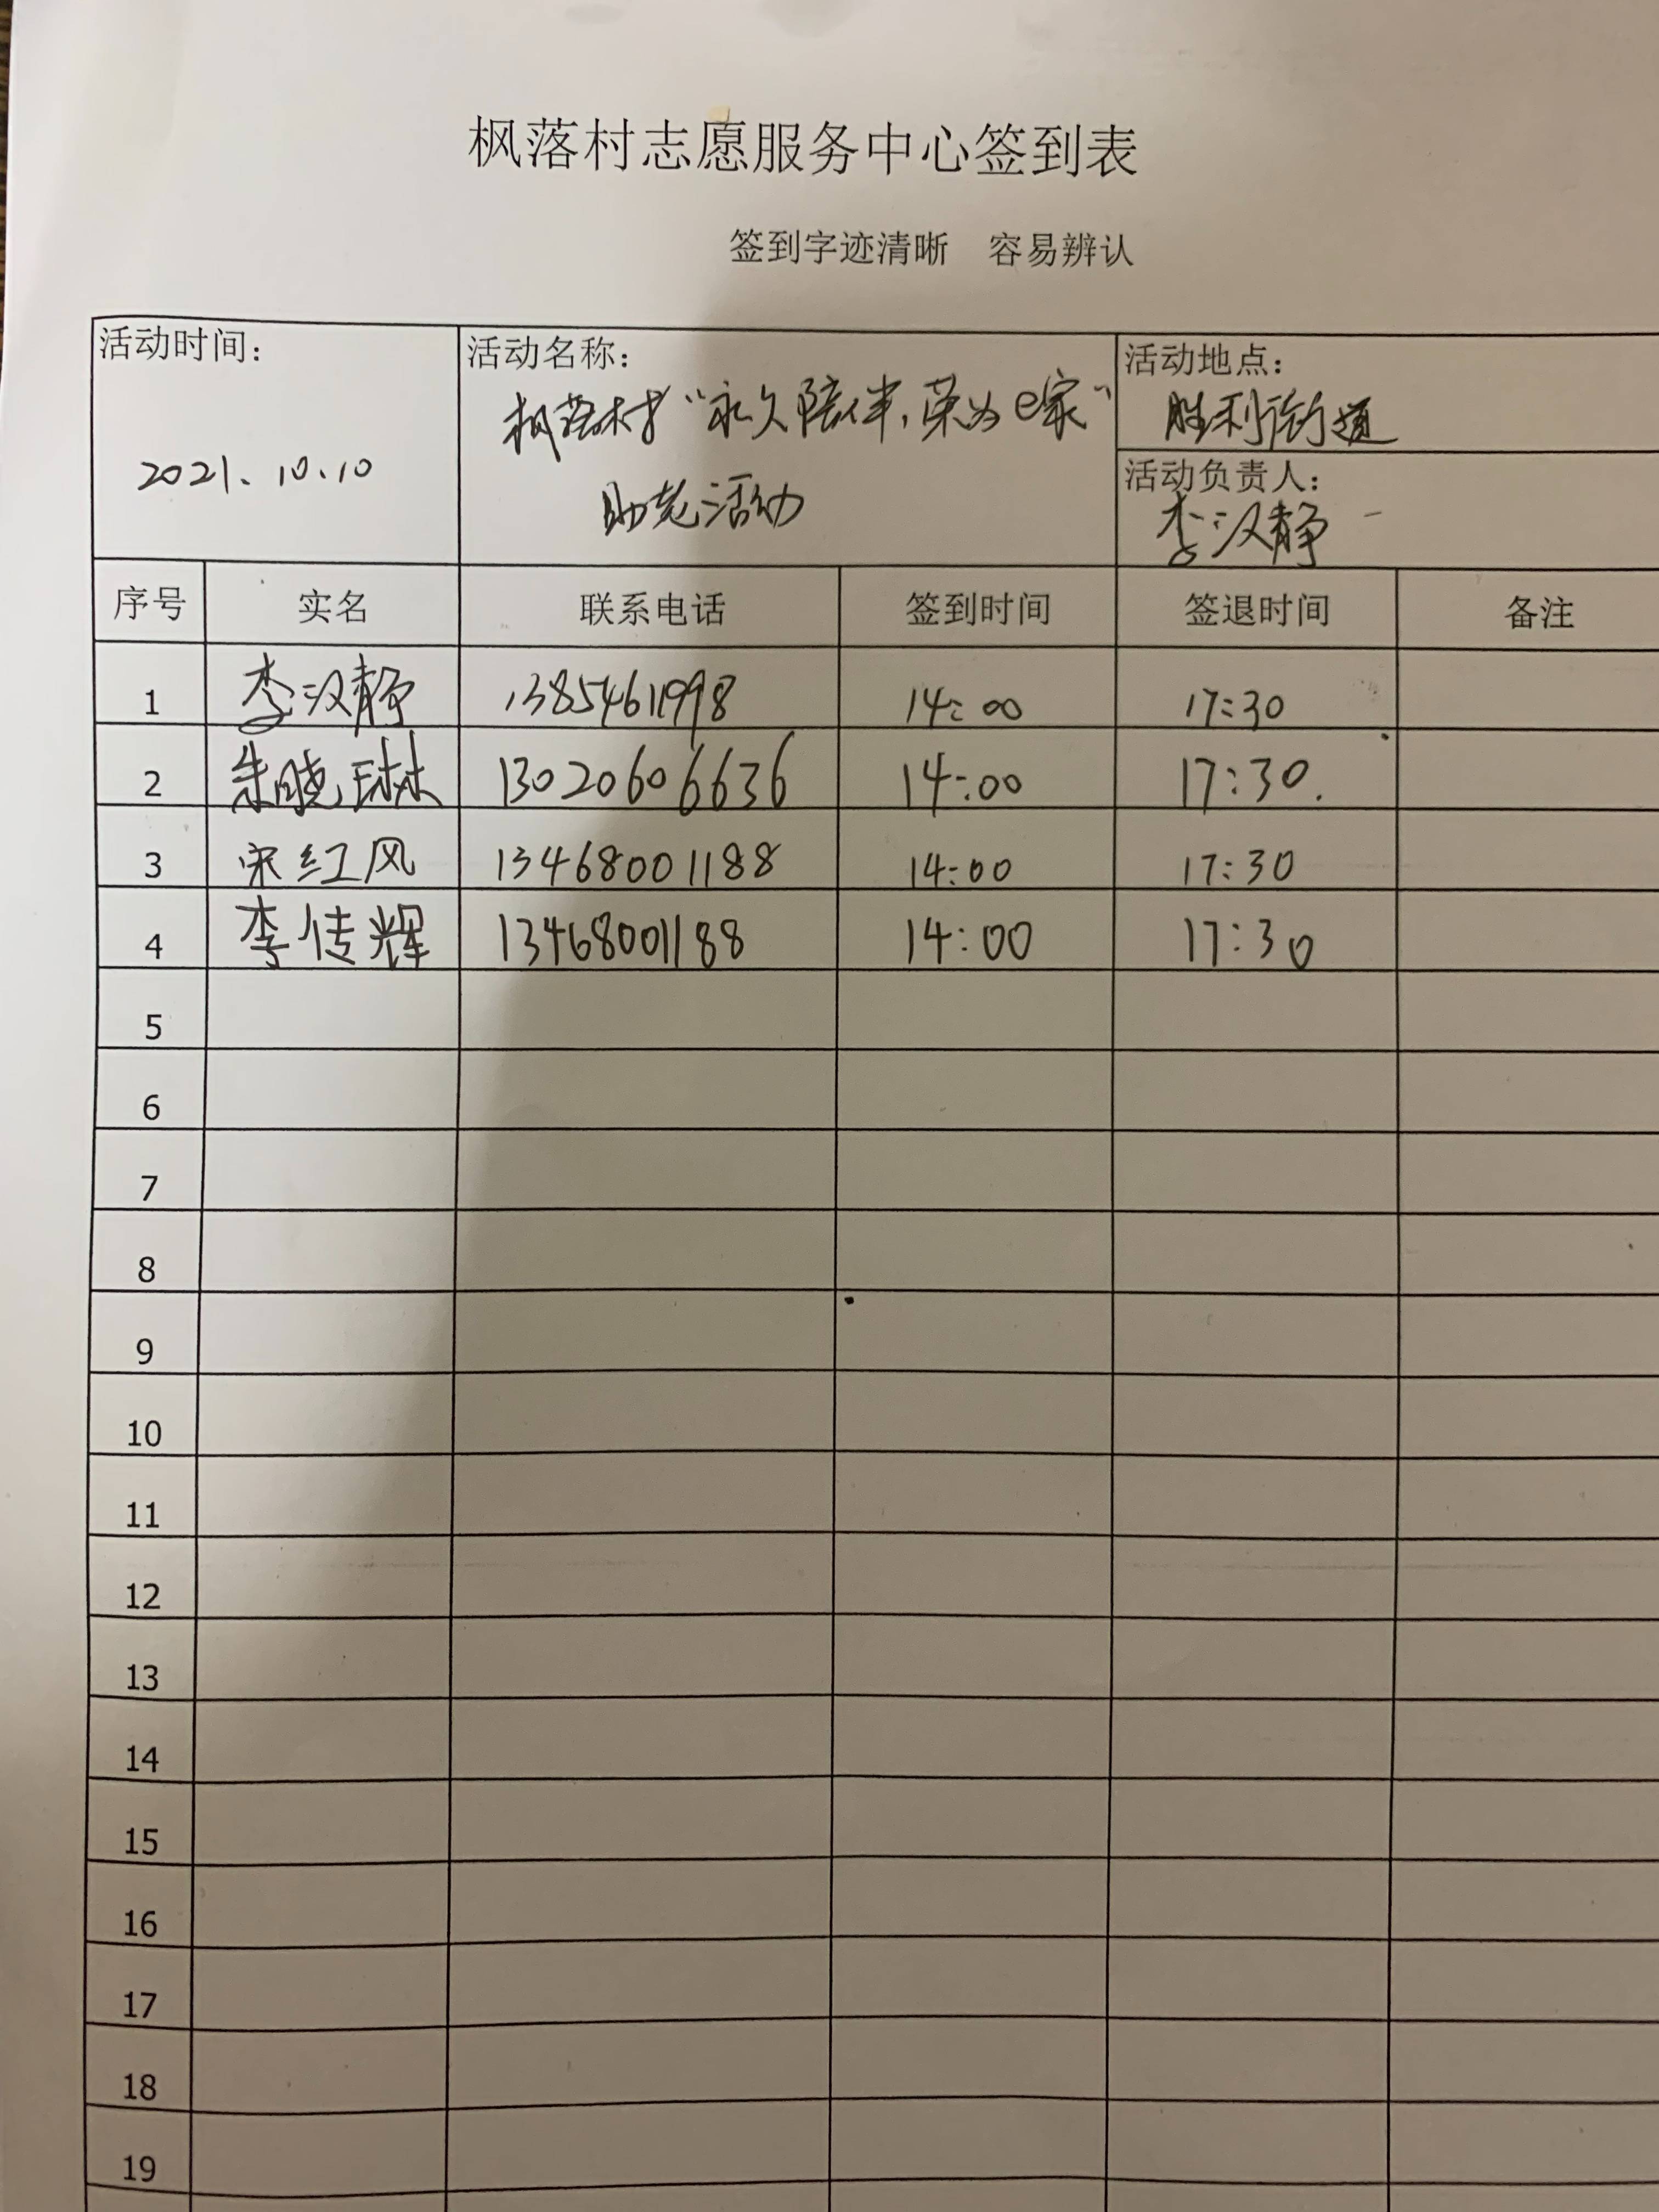 枫落村志愿服务中心签到表
签到字迹清晰 容易辨认
活动时间: 2021.10.10
活动名称: 枫落村“永久陪伴,荣为e家”
助老活动
活动地点: 胜利街道
活动负责人: 李汉静
序号 实名 联系电话 签到时间 签退时间 备注
1 李汉静 13854611998 14:00 17:30
2 朱晓琳 13020606636 14:00 17:30.
3 宋红风 13468001188 14:00 17:30
4 李传辉 13468001188 14:00 17:30
5
6
7
8
9
10
11
12
13
14
15
16
17
18
19